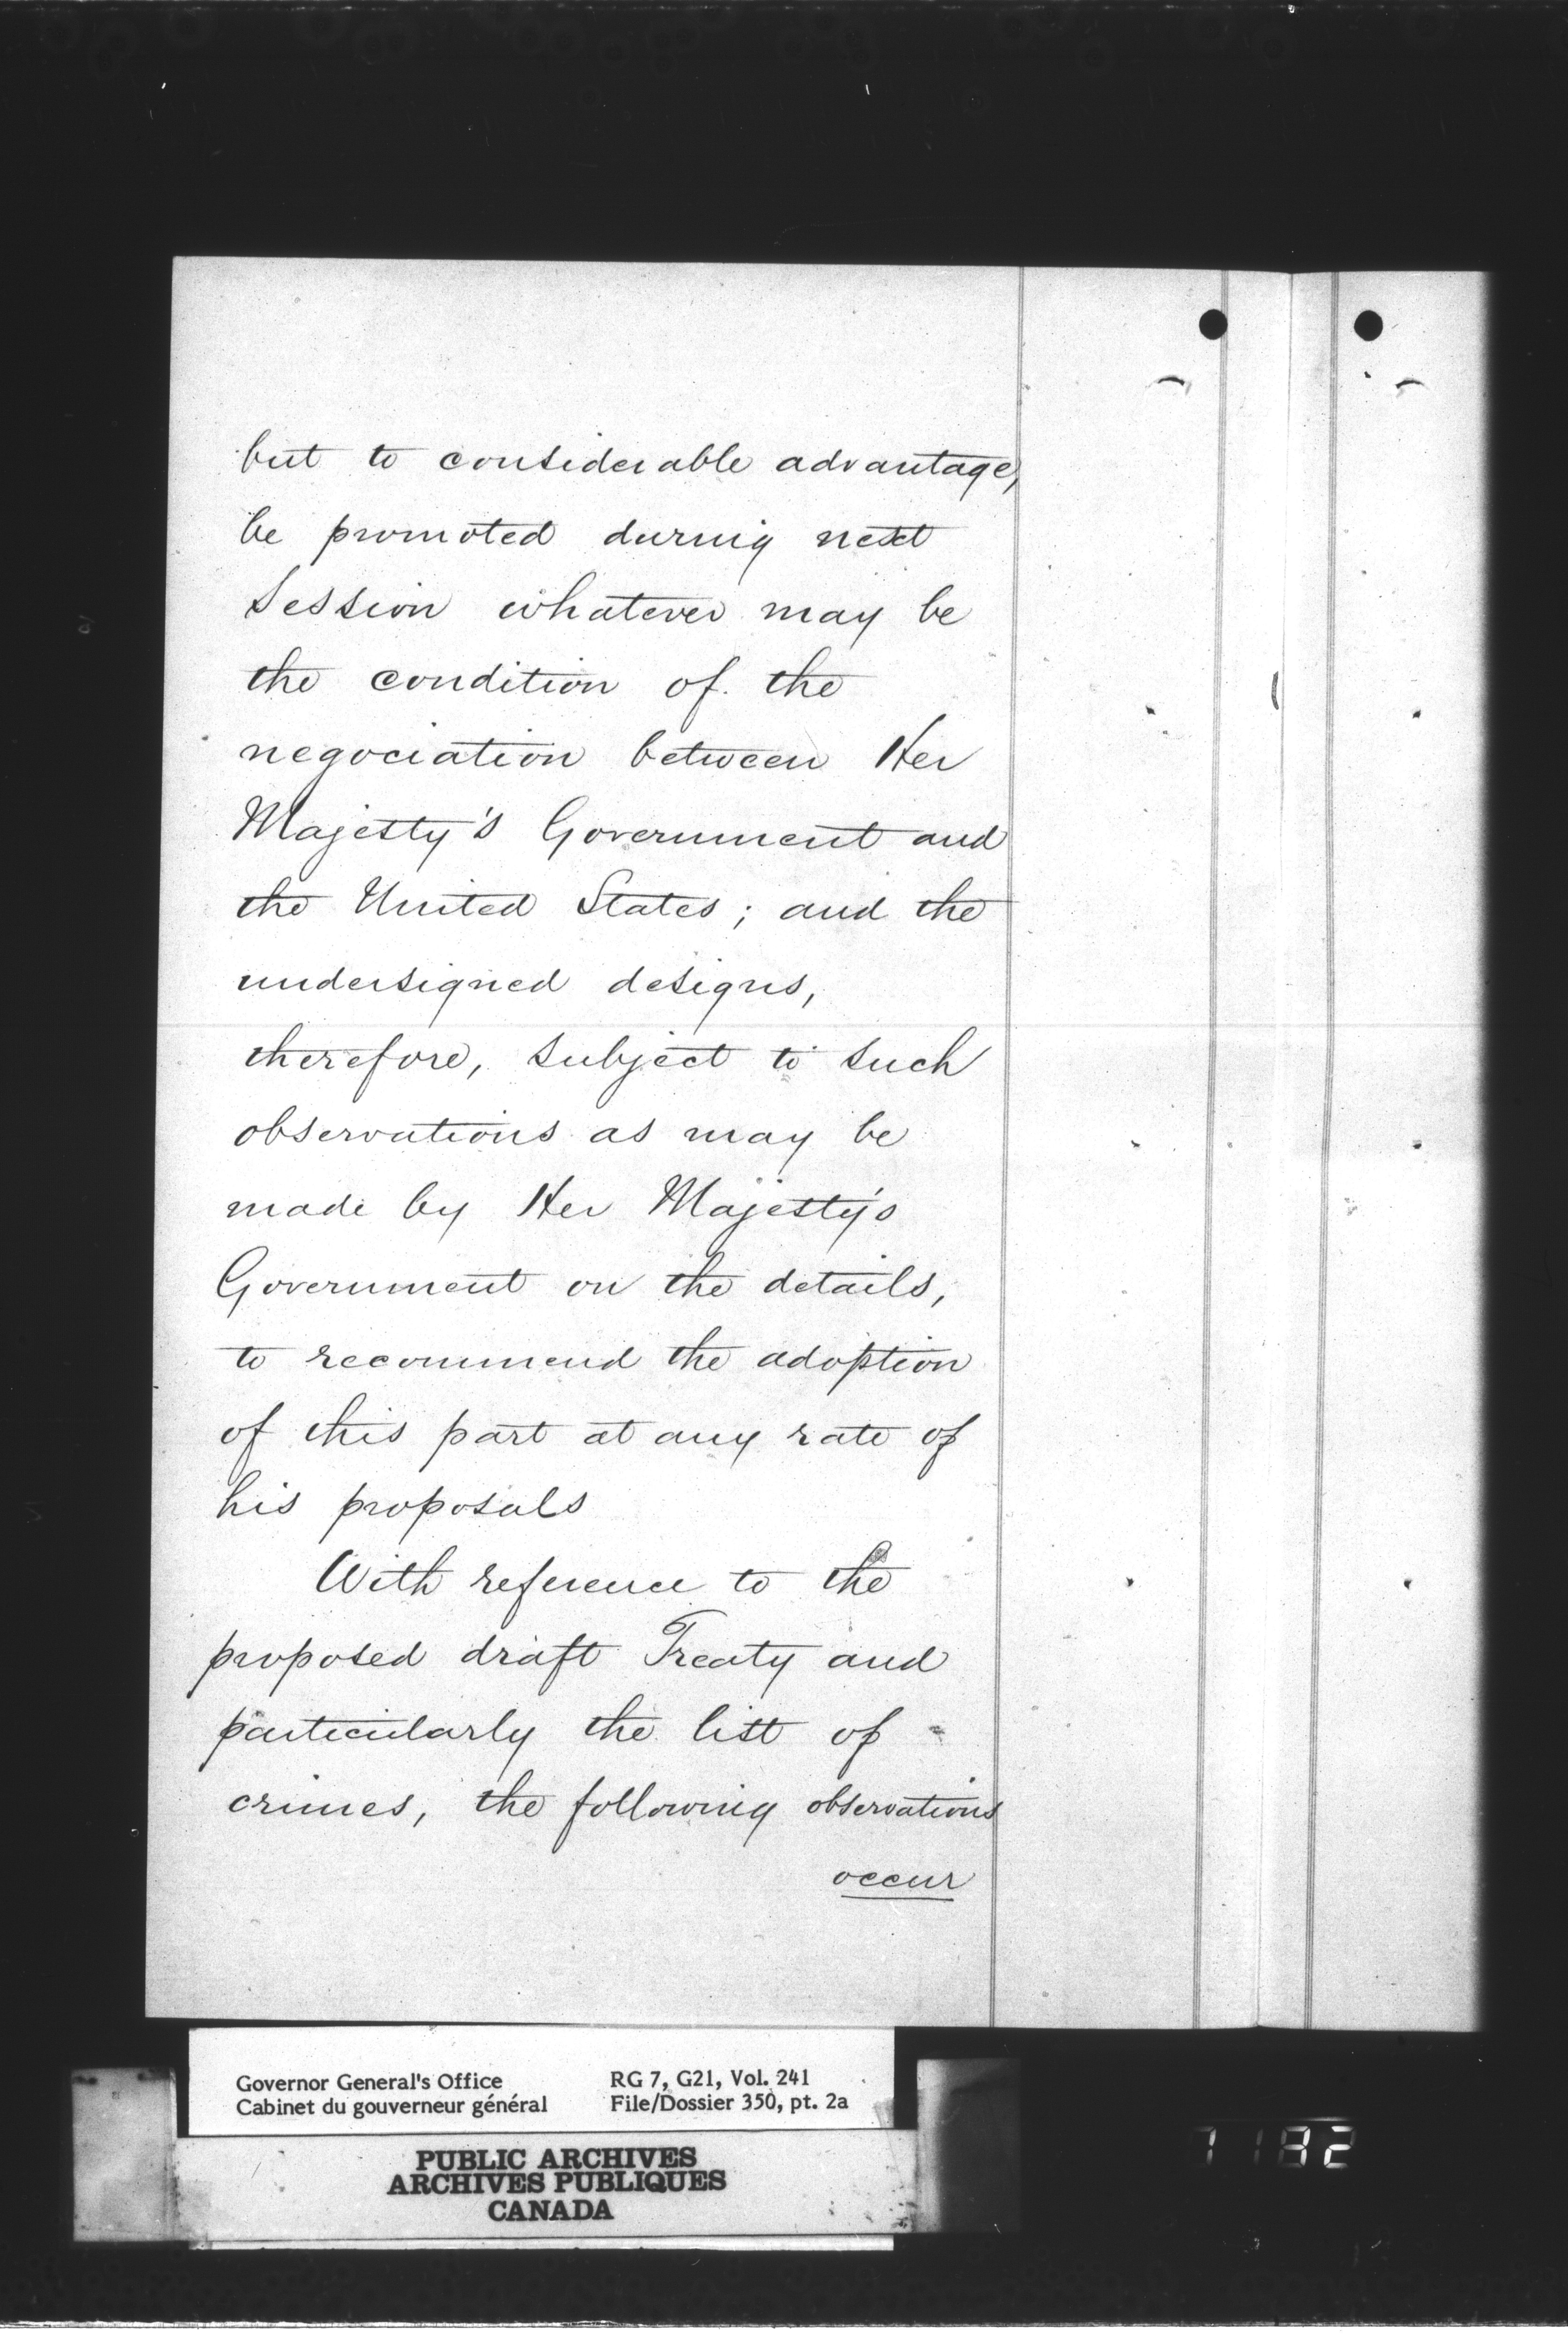 but to considerable advantage,
be promoted during next
Session whatever may be
the condition of the
negociation between Her
Majesty's Government and
the United States; and the
undersigned designs,
therefore, subject to such
observations as may be
made by Her Majesty's
Government on the details,
to recommend the adoption
of this part at any rate of
his proposals
With reference to the
proposed draft Treaty and
particularly the list of
crimes, the following observations
occur
Governor General's Office RG 7, G21, Vol. 241
Cabinet du gouverneur général File/Dossier 350, pt. 2a
PUBLIC ARCHIVES
ARCHIVES PUBLIQUES
CANADA